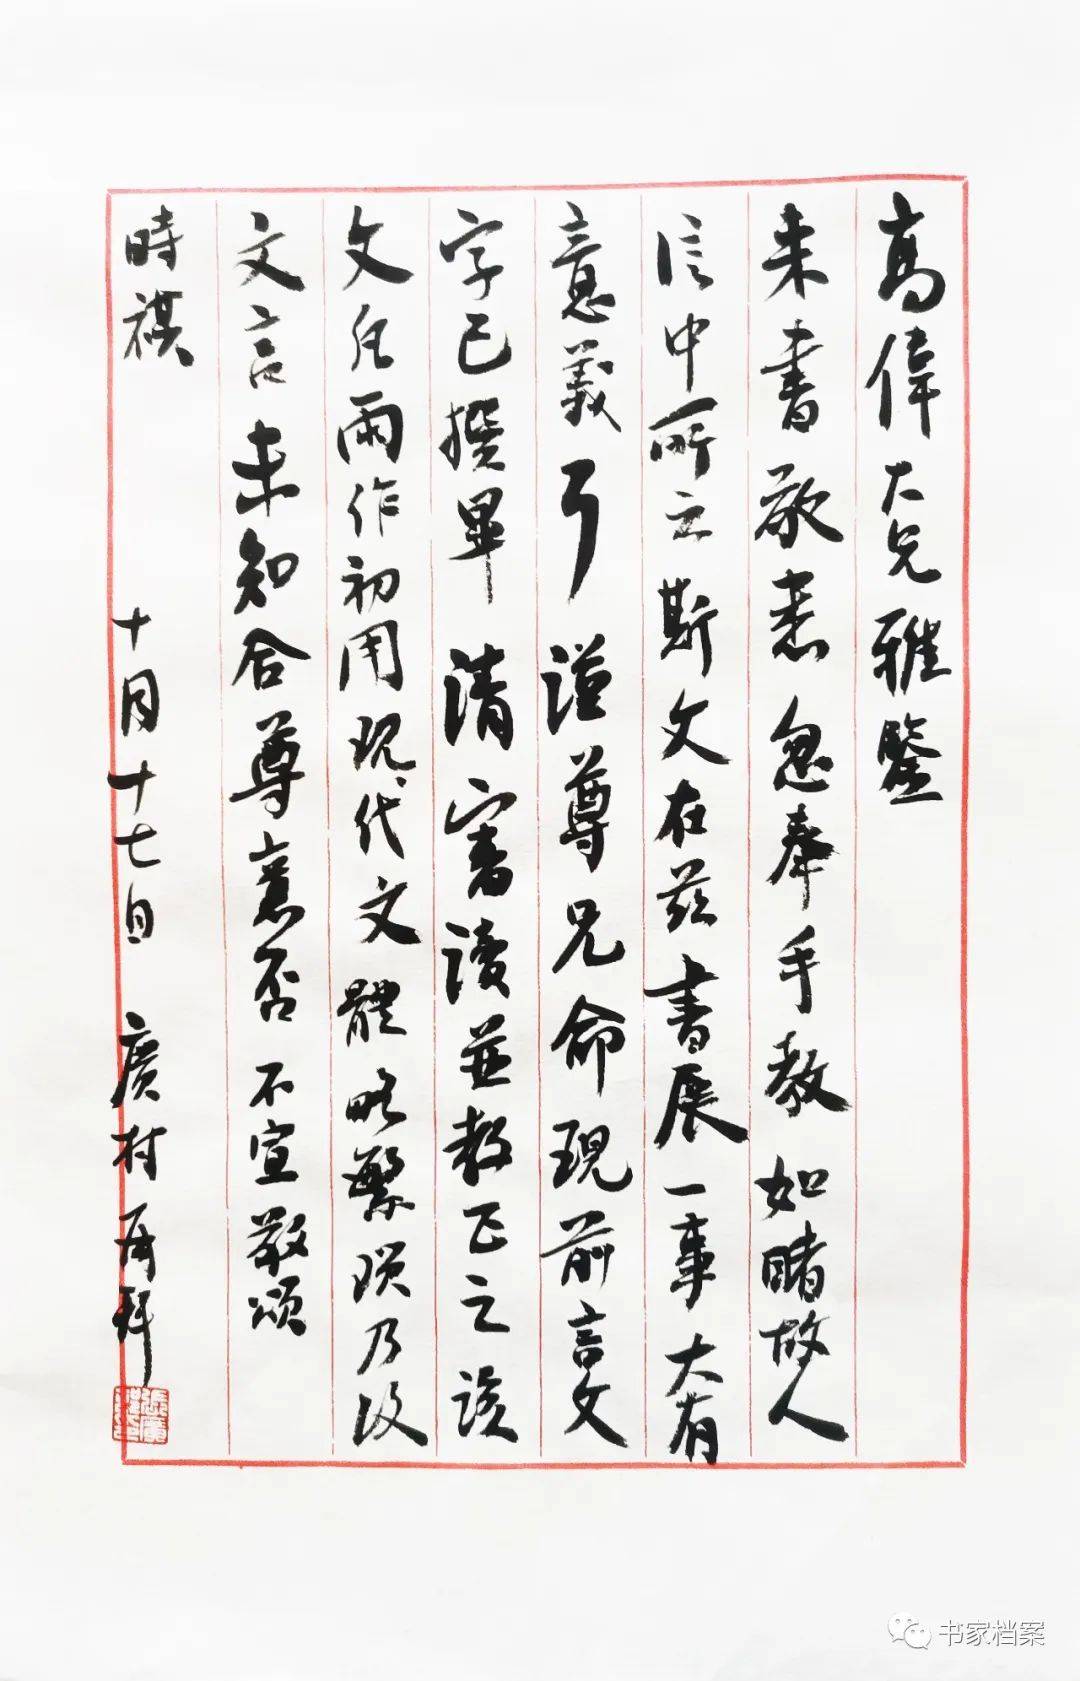 高偉大兄雅鑒
来書敬悉忽奉手教如睹故人
信中所云斯文在兹書展一事大有
意義了謹尊兄命現前言文
字已撰畢請審讀並教正之該
文經兩作初用現代文體略繁瑣乃改
文言未知合尊意否不宣敬頌
時祺
十月十七日廣村再拜
书家档案